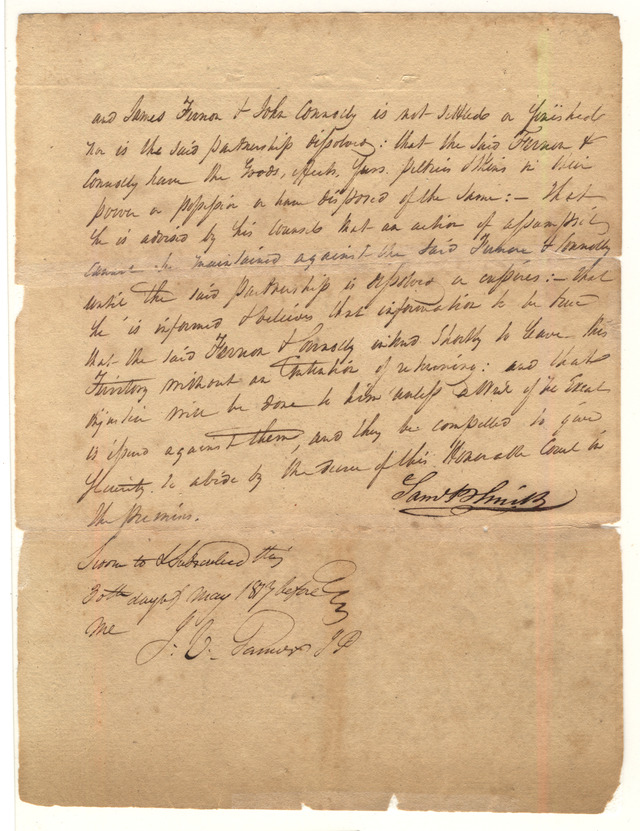 and James Fernon & John Connolly is not settled or finished
nor is the said partnership dissolved: that the said Fernon &
Connolly have the Goods, effects, furs, peltries & skins in their
power or possession or have disposed of the same:— That
he is advised by his counsel that an action of assumpsit
cannot be maintained against the said Fernon & Connolly
until the said partnership is dissolved or expires:— that
he is informed & believes that information to be true
that the said Fernon & Connolly intend shortly to leave this
Territory without an intention of returning: and that
injustice will be done to him unless a Writ of Ne Exeat
is issued against them, and they be compelled to give
security to abide by the decree of this Honorable Court in
the premises.
Saml B Smith
Sworn to & Subscribed this
30th day of May before
me
J. P